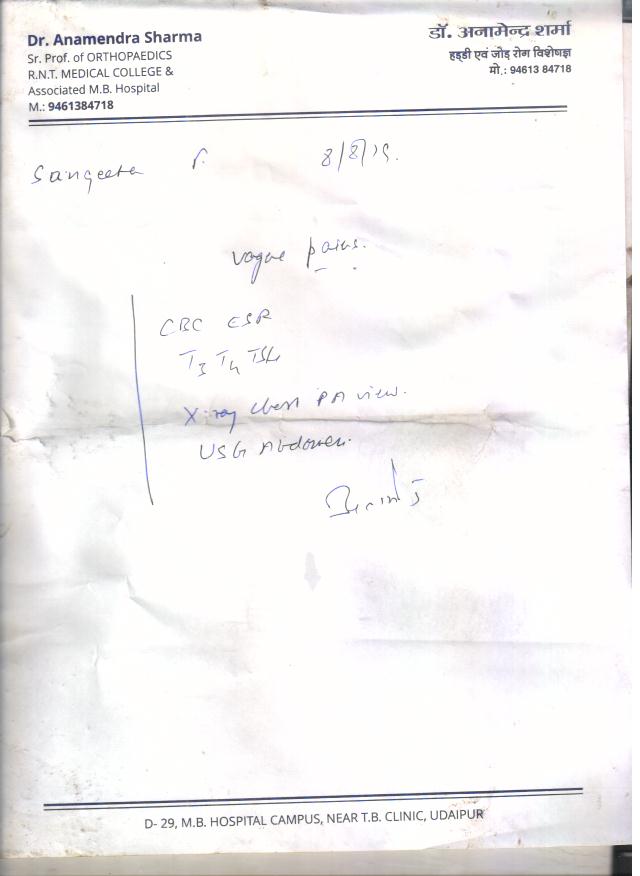 Dr. Anamendra Sharma
Sr. Prof. of ORTHOPAEDICS
R.N.T. MEDICAL COLLEGE &
Associated M.B. Hospital
M.: 9461384718
डॉ. अनामेन्द्र शर्मा
हड्डी एवं जोड़ रोग विशेषज्ञ
मो.: 94613 84718
Sangeeta
vague pains.
CBC ESR
T3 T4 TSH
X-ray chest PA view.
USG Abdomen.
D- 29, M.B. HOSPITAL CAMPUS, NEAR T.B. CLINIC, UDAIPUR